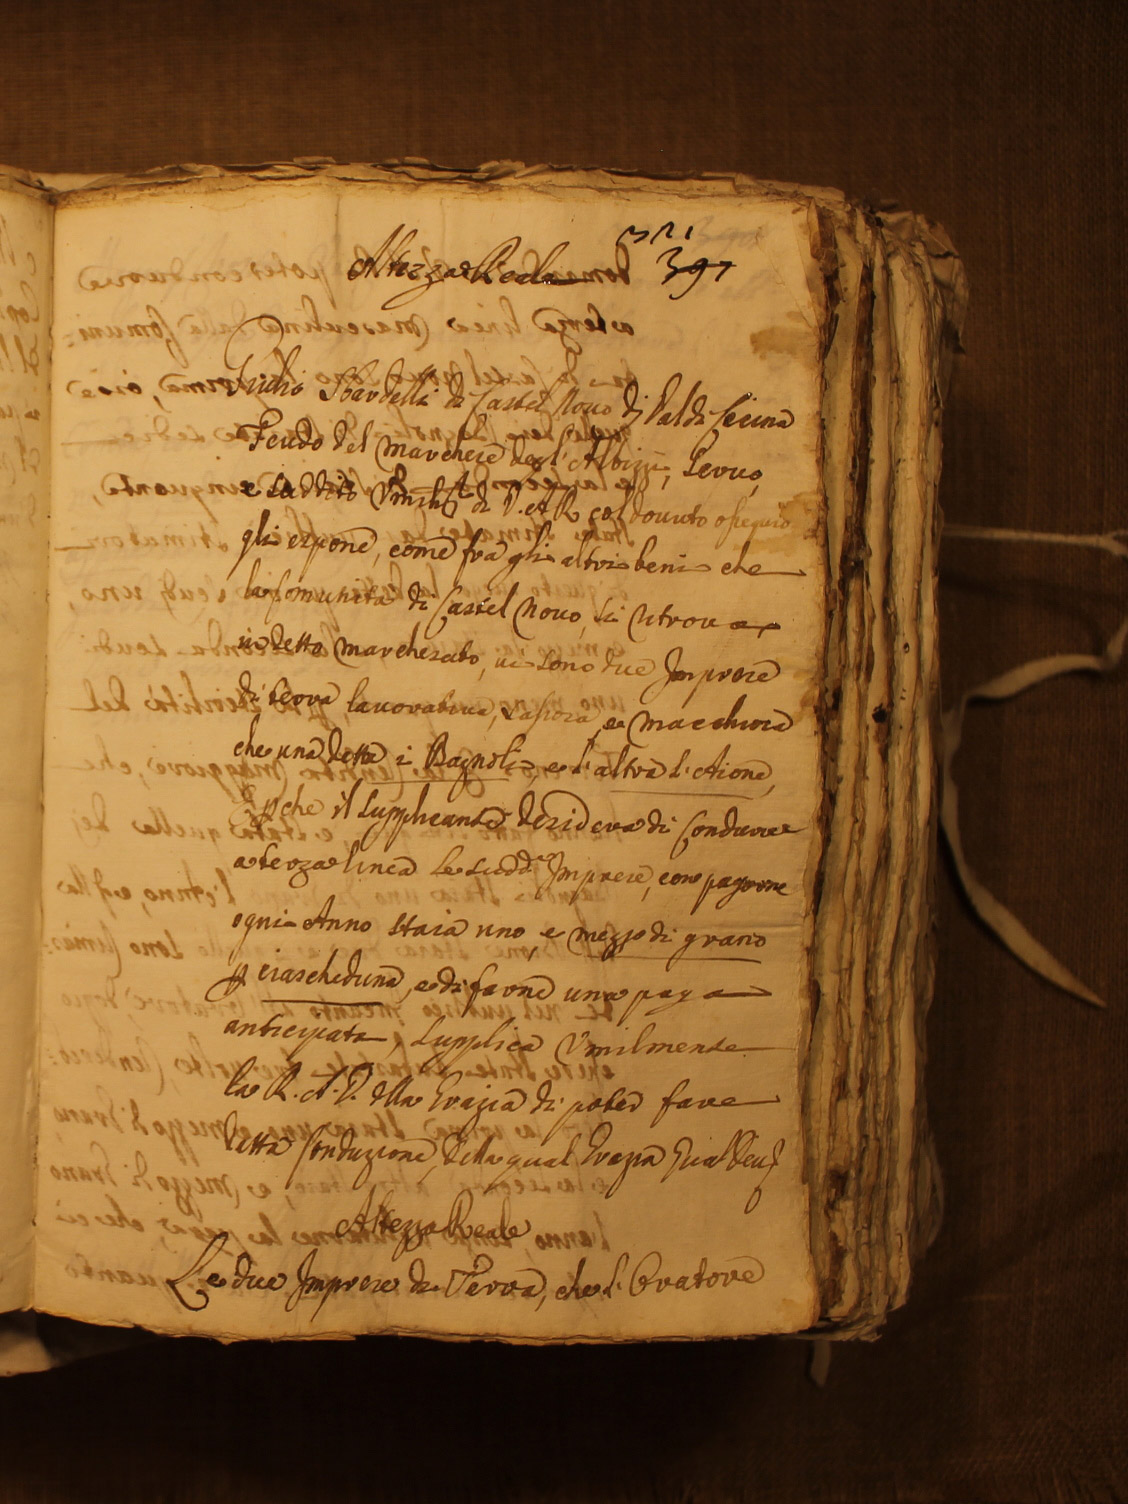 321
397
Altezza Reale
Giulio Sbardelli di Castel Nouo di Val di Cecina
Feudo del Marchese degl'Albizi, Seruo,
e suddito Vmiliss. di V. A. R. col douuto ossequio
gli espone, come fra gli altri beni che
la Comunità di Castel Nouo, si ritroua
in detto Marchesato, ui sono due Imprese
di terra lauoratiua, e Macchiosa
che una detta i Bagnoli, e l'altra l'Aione,
E perche il supplicante desidera di condurre
a terza linea le sudd.e Imprese, con pagarne
ogni Anno staia uno, e mezzo di grano
p ciascheduna, e di farne una paga
anticipata, supplica Vmilmente
la R. A. V. della Grazia di poter fare
detta Conduzione, della qual Grazia
Altezza Reale
Le due Imprese di Terra, che l'Oratore